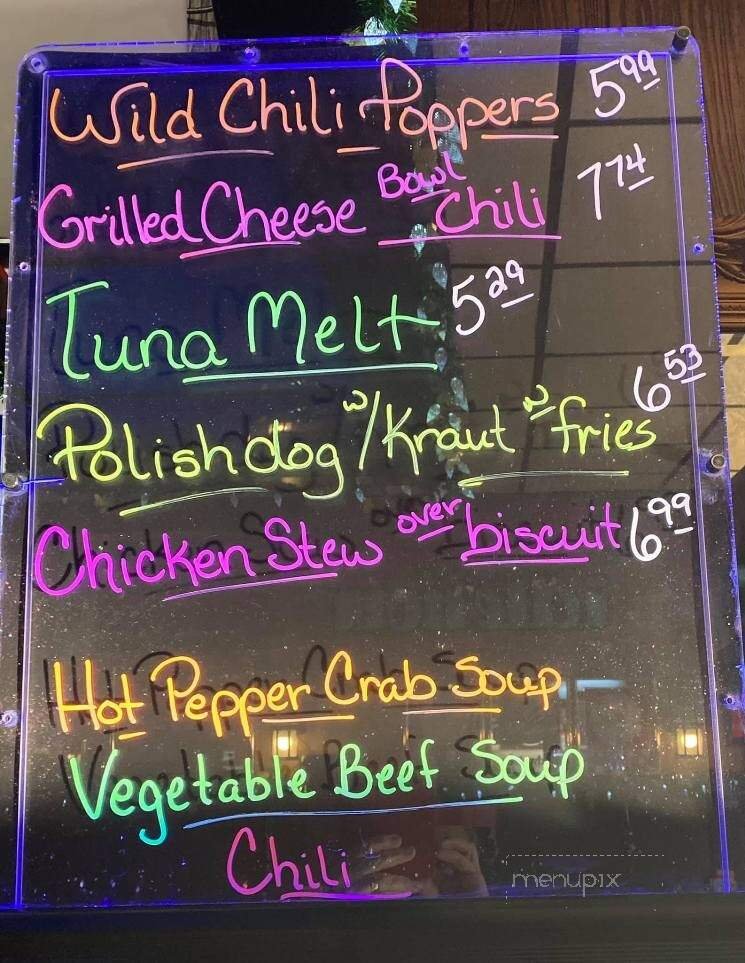 Wild Chili Poppers 5 99
Grilled Cheese Bowl Chili 7 74
Tuna Melt 5 29
Polish dog w/ Kraut w fries 6 53
Chicken Stew over biscuit 6 99
Hot Pepper Crab Soup
Vegetable Beef Soup
Chili
menupix